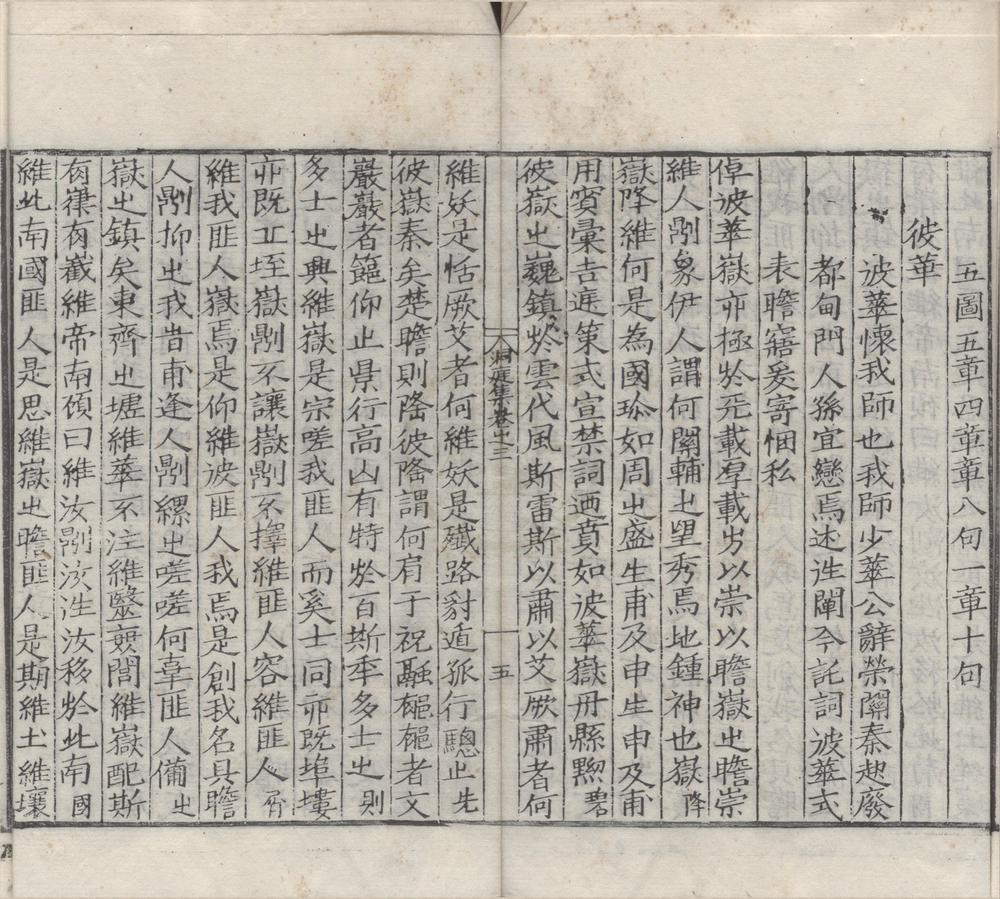 五圖五章四章章八句一章十句
彼華
彼華懷我師也我師少華公辭榮關秦起廢
都甸門人孫宜戀焉述往闡今託詞彼華式
表瞻寤爰寄悃私
倬彼華嶽亦極於元載厚載方以崇以瞻嶽之瞻崇
維人剛象伊人謂何關輔之望秀焉地鍾神也嶽降
嶽降維何是為國珍如周之盛生甫及申生申及甫
用賓彙吉廷策式宣禁詞迺賁如彼華嶽丹縣黟碧
彼嶽之巍鎮於雲代風斯雷斯以肅以艾厥肅者何
洞庭集卷之三
五
維妖是恬厥艾者何維妖是殲路豺遁狐行驄止先
彼嶽秦矣楚瞻則隆彼隆謂何肩于祝融者文
巖巖者範仰止景行高山有特於百斯年多士之則
多士之興維嶽是宗嗟我匪人而奚士同亦既埠塿
亦既丘垤嶽剛不讓嶽剛不擇維匪人容維匪人屑
維我匪人嶽焉是仰維彼匪人我焉是創我名具瞻
人剛抑之我昔甫逢人剛縲之嗟嗟何辜匪人備之
嶽之鎮矣東齊之墟維華不注維毉巫閭維嶽配斯
有嵂有巀維帝南傾曰維汝剛汝往汝移於此南國
維此南國匪人是思維嶽之瞻匪人是期維土維壤